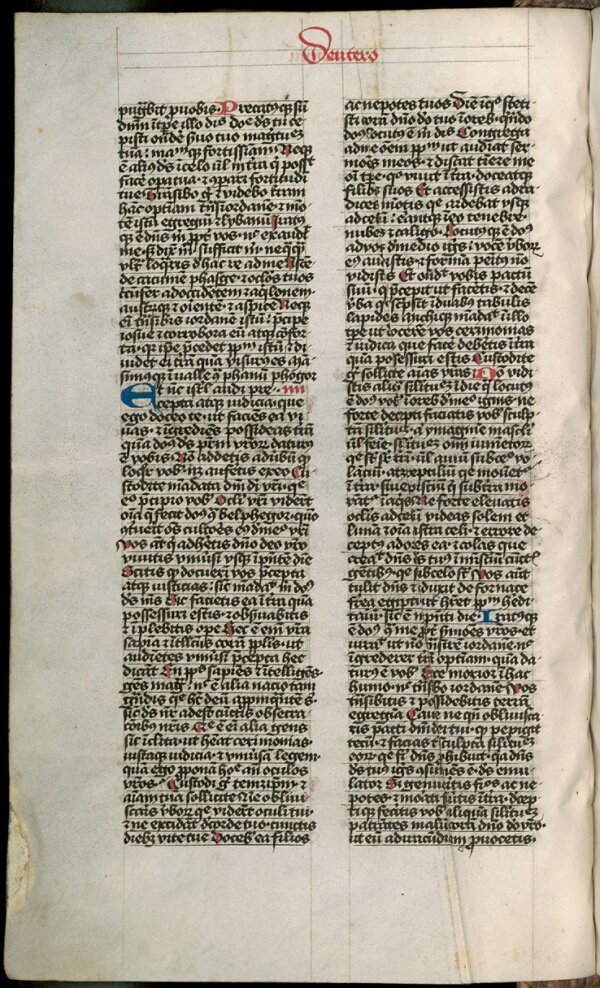 Deutero
pugnabit pro vobis. Precatusque sum
dominum in tempore illo dicens domine deus tu ce
pisti ostendere servo tuo magnitudinem
tuam manumque fortissimam Neque
enim est alius deus in celo vel in terra qui possit
facere opera tua et comparari fortitudini
tue Transibo ergo et videbo terram
hanc optimam trans iordanem et mon
tem istum egregium et lybanum Iratus
que est dominus michi propter vos nec exaudivit
me sed dixit michi sufficit tibi nequaquam
ultra loquaris de hac re ad me Ascende
cacumen phasge et oculos tuos
circumfer ad occidentem et aquilonem
austrumque et orientem et aspice Neque
enim transibis iordanem istum precipe
iosue et corrobora eum atque confor
ta quia ipse precedet populum istum et di
videt eis terram quam visurus es man
simusque in valle contra phanum phogor
Et nunc israel audi precepta iiii
et iudicia que
ego doceo te ut faciens ea vi
vas et ingrediens possideas terram
quam dominus deus patrum vestrorum daturus
est vobis Non addetis ad verbum quod
loquor vobis nec aufertis ex eo Cu
stodite mandata domini dei vestri que
ego precipio vobis Oculi vestri viderunt
omnia que fecit dominus contra belphegor quomodo
contriverit omnes cultores eius de medio vestri
Vos autem qui adheretis domino deo vestro
vivitis universi usque in presentem diem
Scitis quod docuerim vos precepta
atque iusticias sicut mandavit michi dominus
deus meus Sic facietis ea in terra quam
possessuri estis et observabitis
et implebitis opere Hec est enim vestra
sapientia et intellectus coram populis ut
audientes universi precepta hec
dicant En populus sapiens et intelligens
gens magna nec est alia natio tam
grandis que habeat deos appropinquantes sibi
sicut deus noster adest cunctis obsecra
tionibus nostris Que est enim alia gens
sic inclita ut habeat cerimonias
iustaque iudicia et universam legem
quam ego proponam hodie ante oculos
vestros Custodi igitur temetipsum et
animam tuam sollicite Ne oblivi
scaris verborum que viderunt oculi tui
et ne excidant de corde tuo cunctis
diebus vite tue Docebis ea filios
ac nepotes tuos Diem in quo steti
sti coram domino deo tuo in oreb quando
dominus locutus est michi dicens Congrega
ad me populum ut audiat ser
mones meos et discat timere me
omni tempore quo vivit in terra doceatque
filios suos Et accessistis ad ra
dices montis qui ardebat usque
ad celum erantque in eo tenebre
nubes et caligo Locutusque est dominus
ad vos de medio ignis vocem verborum
eius audistis et formam penitus non
vidistis Et ostendit vobis pactum
suum quod precepit ut faceretis et decem
verba que scripsit in duabus tabulis
lapideis michique mandavit in illo
tempore ut docerem vos cerimonias
et iudicia que facere debetis in terra
quam possessuri estis Custodite
igitur sollicite animas vestras Non vidi
stis aliquam similitudinem in die qua locutus
est dominus vobis in oreb de medio ignis ne
forte decepti faciatis vobis sculp
tam similitudinem aut ymaginem masculi
vel femine similitudinem omnium iumentorum
que sunt super terram vel avium sub celo vo
lantium atque reptilium que moventur
in terra sive piscium qui sub terra mo
rantur in aquis Ne forte elevatis
oculis ad celum videas solem et
lunam et omnia astra celi et errore de
ceptus adores ea et colas que
creavit dominus deus tuus in ministerium cunctis
gentibus que sub celo sunt Vos autem
tulit dominus et eduxit de fornace
ferrea egypti ut haberet populum heredi
tarium sicut est in presenti die Iratusque
est dominus contra me propter sermones vestros et
iuravit ut non transirem iordanem nec
ingrederer terram optimam quam da
turus est vobis Ecce morior in hac
humo non transibo iordanem Vos
transibitis et possidebitis terram
egregiam Cave nequando obliviscaris
pacti domini dei tui quod pepigit
tecum et facias tibi sculptam similitudinem
eorum que fieri dominus prohibuit quia dominus
deus tuus ignis consumens est deus emu
lator Si genueritis filios ac ne
potes et morati fueritis in terra decep
tique feceritis vobis aliquam similitudinem
patrantes malum coram domino deo vestro
ut eum ad iracundiam provocetis